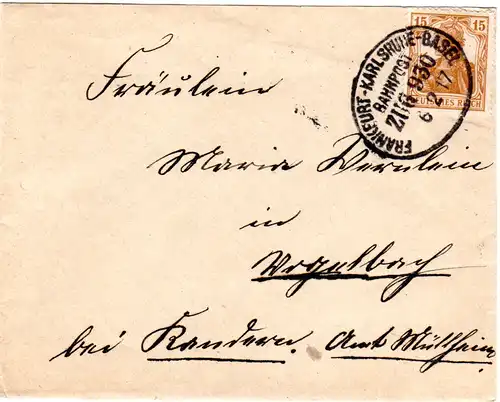 15 15
DEUTSCHES REICH
FRANKFURT-KARLSRUHE-BASEL
BAHNPOST
ZUG 930
6 2 17
Fräulein
Maria Wernlein
in
Vogelbach
bei Kandern. Amt Müllheim